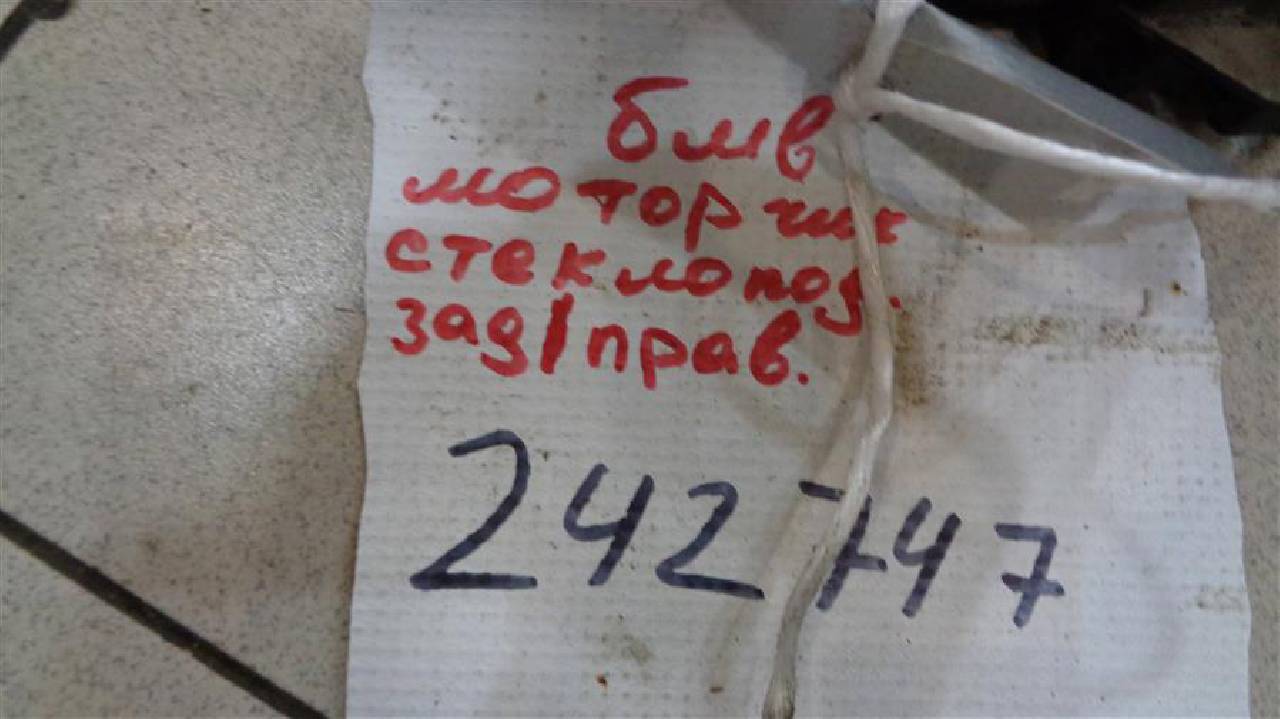 бмв
моторчик
стеклопод.
зад/прав.
242747